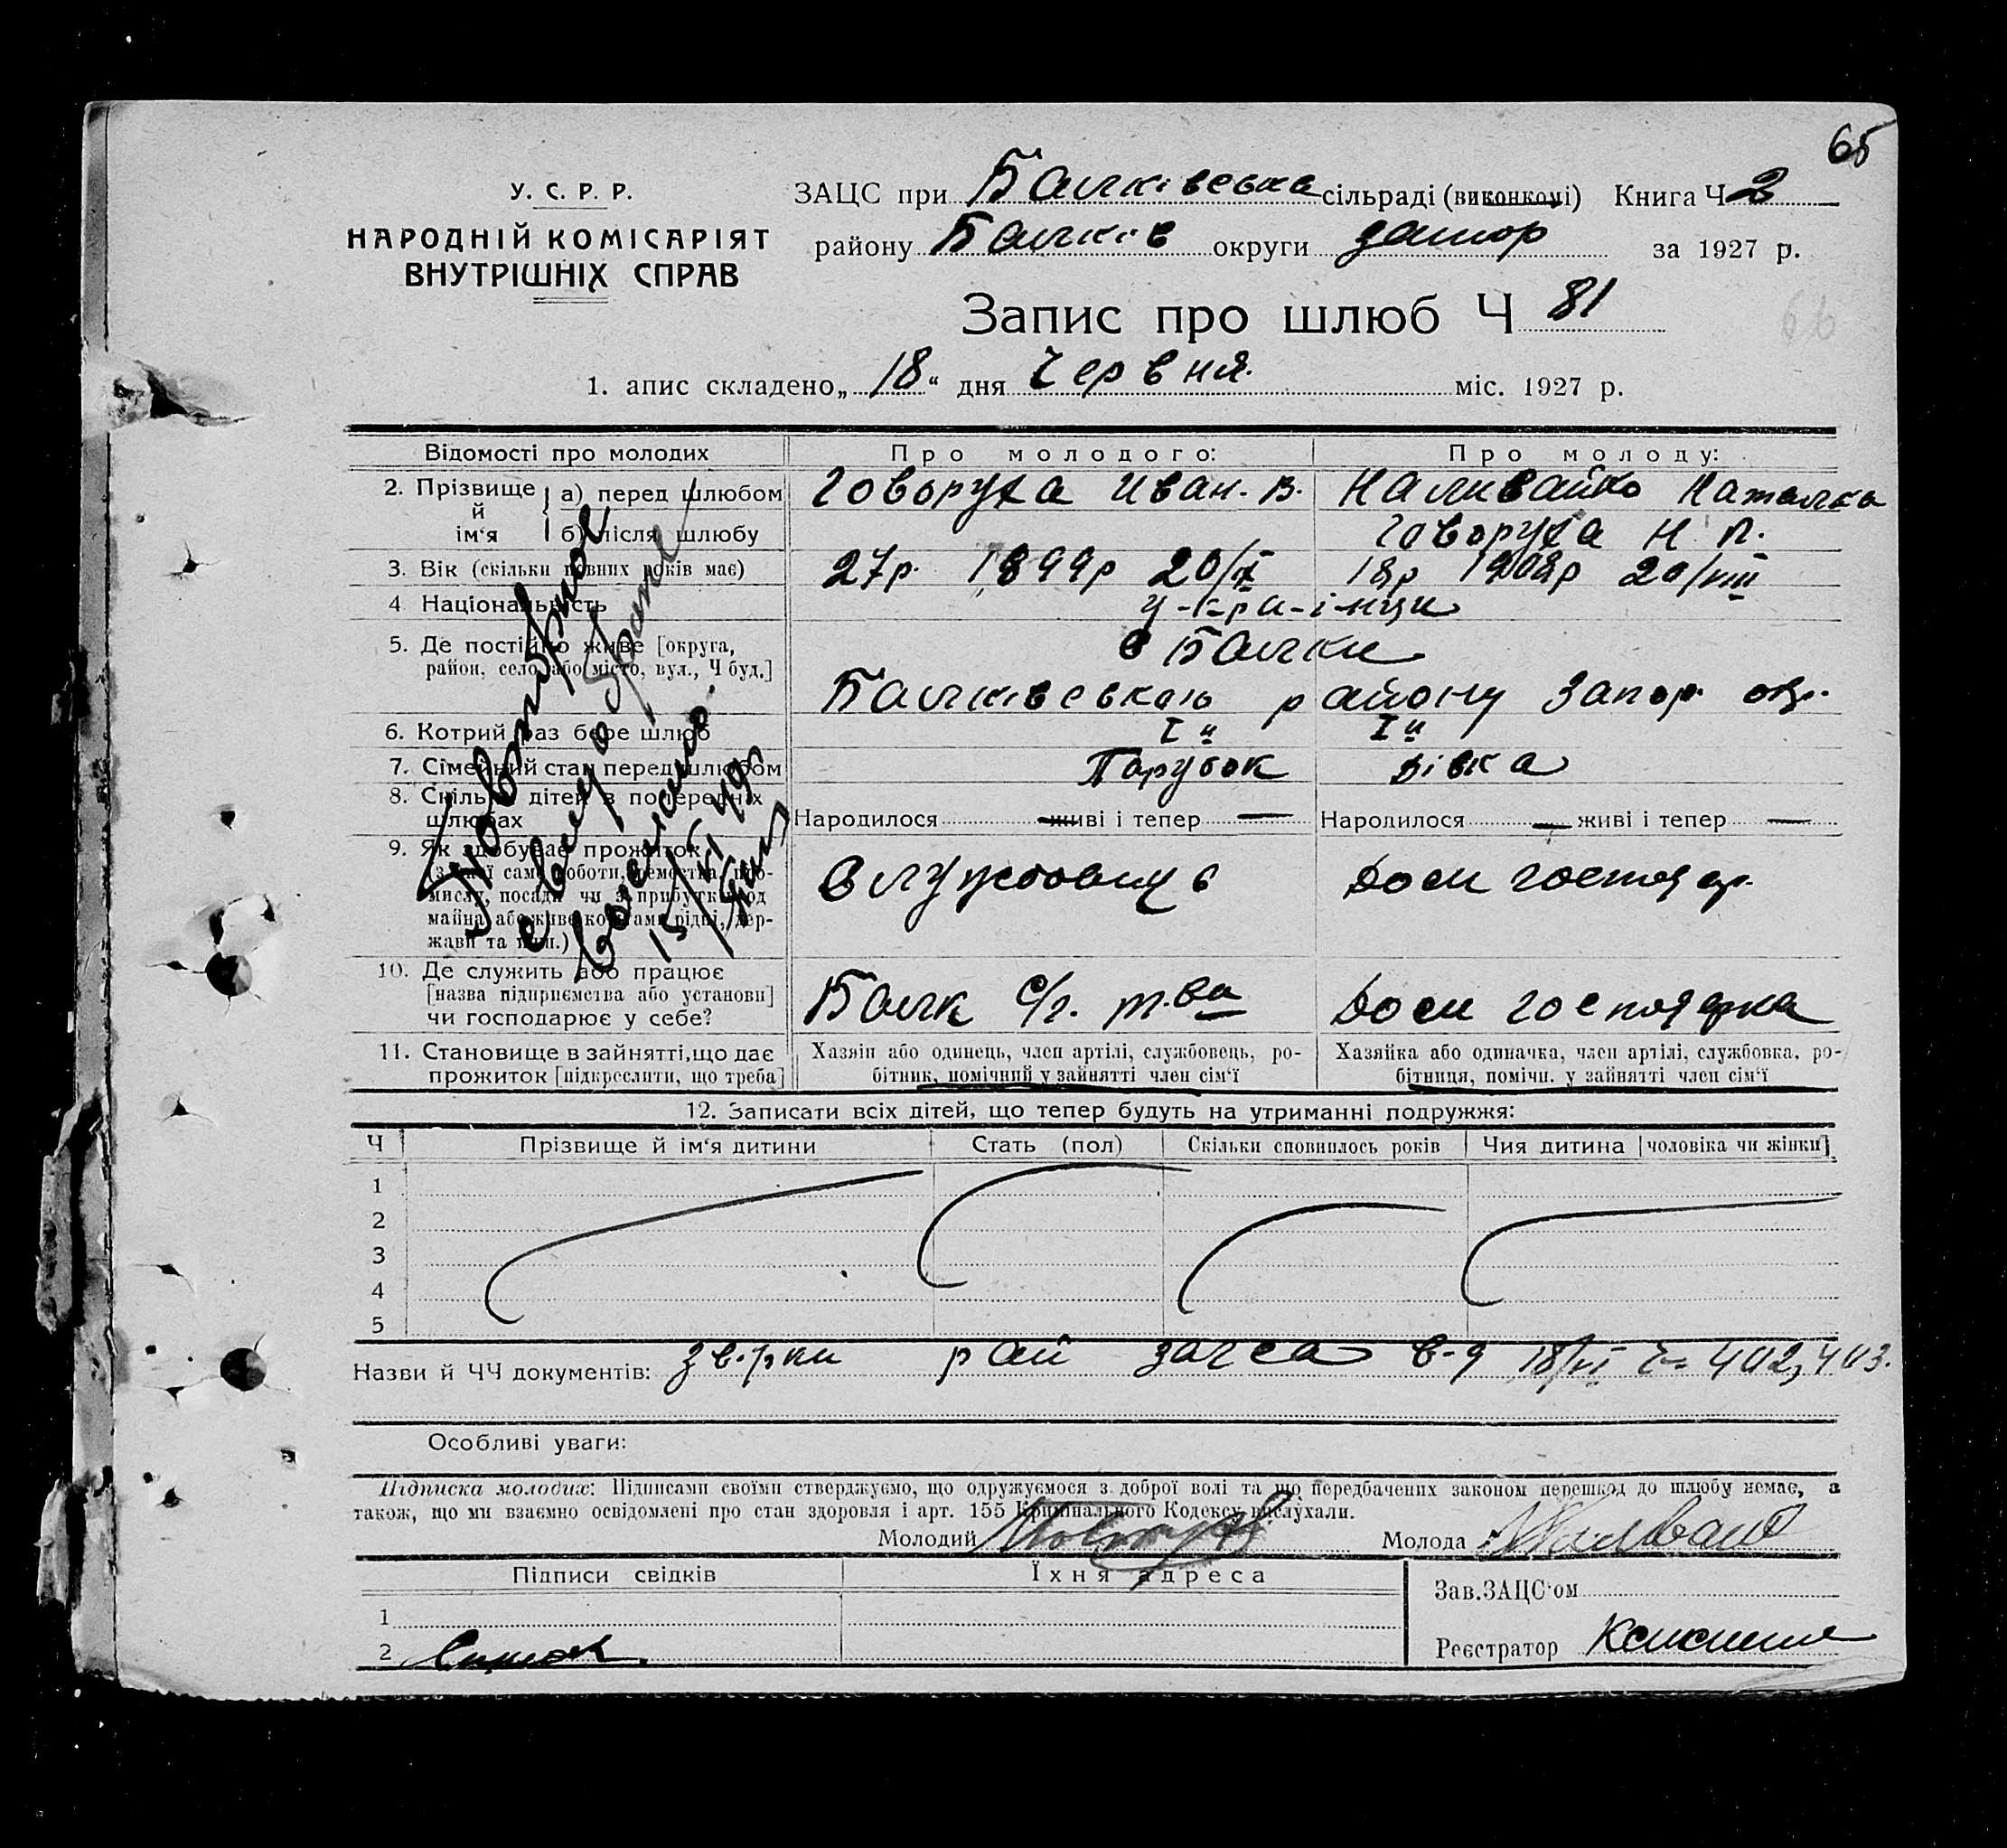 65
У. С. Р. Р.
НАРОДНІЙ КОМІСАРІЯТ
ВНУТРІШНІХ СПРАВ
ЗАЦС при Балківська сільраді (виконкомі) Книга Ч 2
району Балків округи Запор за 1927 р.
Запис про шлюб Ч 81
66
1. апис складено „18“ дня Червня міс. 1927 р.
Відомості про молодих Про молодого: Про молоду:
2. Прізвище й ім‘я а) перед шлюбом Говоруха Иван. В. Наливайко Наталка
б) після шлюбу Говоруха Н. П.
3. Вік (скільки повних років має) 27р. 1899р 20/IX 18р 1908р 20/VIII
4 Національність у-кра-ї-нци
5. Де постійно живе [округа, район, село або місто, вул., Ч буд.] с Балки
Балківського району Запор. окр.
6. Котрий раз бере шлюб I й I й
7. Сімейний стан перед шлюбом Парубок Дівка
8. Скільки дітей в попередніх шлюбах Народилося — живі і тепер — Народилося — живі і тепер —
9. Як здобуває прожиток
(з якої саме роботи, ремества, про-
мислу, посади чи з прибутків од
майна, або живе коштами рідні, дер-
жави та инш.)
Службовець Дом господар.
10. Де служить або працює
[назва підприємства або установи]
чи господарює у себе?
Балк с/г. т.ва Дом господарка
11. Становище в зайнятті, що дає
прожиток [підкреслити, що треба]
Хазяїн або одинець, член артілі, службовець, ро-
бітник, помічний у зайнятті член сім‘ї
Хазяйка або одиначка, член артілі, службовка, ро-
бітниця, помічн. у зайнятті член сім‘ї
12. Записати всіх дітей, що тепер будуть на утриманні подружжя:
Ч Прізвище й ім‘я дитини Стать (пол) Скільки сповнилось років Чия дитина [чоловіка чи жінки]
1
2
3
4
5
Назви й ЧЧ документів: рай загса в-д 18/VI 402,403.
Особливі уваги:
Підписка молодих: Підписами своїми стверджуємо, що одружуємося з доброї волі та що передбачених законом перешкод до шлюбу немає, а
також, що ми взаємно освідомлені про стан здоровля і арт. 155 Кримінального Кодексу вислухали.
Молодий Молода
Підписи свідків Їхня адреса
Зав.ЗАЦС‘ом
1
2
Реєстратор